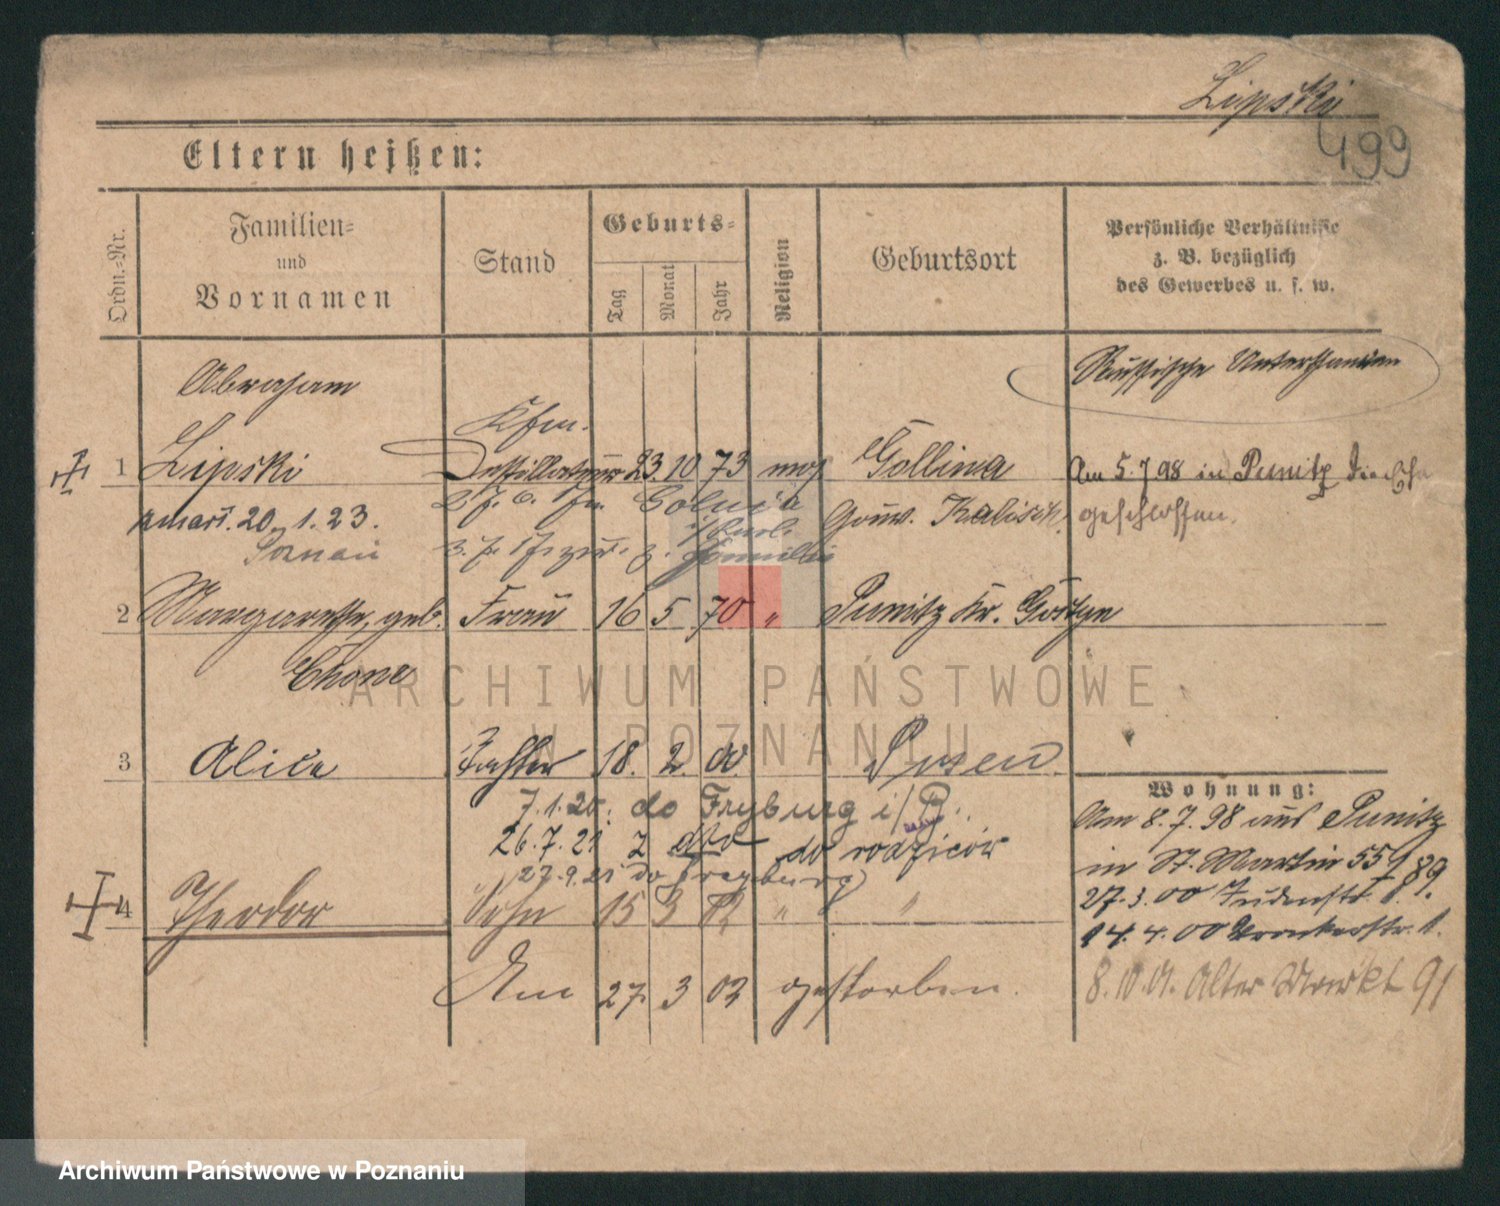 Lipski
499
Eltern heißen:
Ordn.-Nr.
Familien-
und
Vornamen
Stand
Geburts-
Tag
Monat
Jahr
Religion
Geburtsort
Persönliche Verhältnisse
z. B. bezüglich
des Gewerbes u. s. w.
Russische Unterthanen
Abraham
Kfm.
1 Lipski Destillateur 23. 10 73 mos Gollina Am 5.7.98 in Punitz die Ehe
zmarł. 20. 1. 23. Gouv. Kalisch. geschlossen.
Poznań
2 Margarethe, geb. Frau 16 5 70 " Punitz Kr. Gostyn
Chone
3 Alice Tochter 18. 2. 00 Posen
Wohnung:
7.1.20. do Fryburg i/B. Am 8.7.98 aus Punitz
26.7.21 z dto do rodziców in St. Martin 55
27.9.21 do Freyburg 27.3.00 Judenstr.
4 Theodor Sohn 15 3 02 " " 14.4.00 Kronkerstr. 1.
Am 27. 3 02 gestorben. 8.10.01. Alter Markt 91
ARCHIWUM PAŃSTWOWE
W POZNANIU
Archiwum Państwowe w Poznaniu